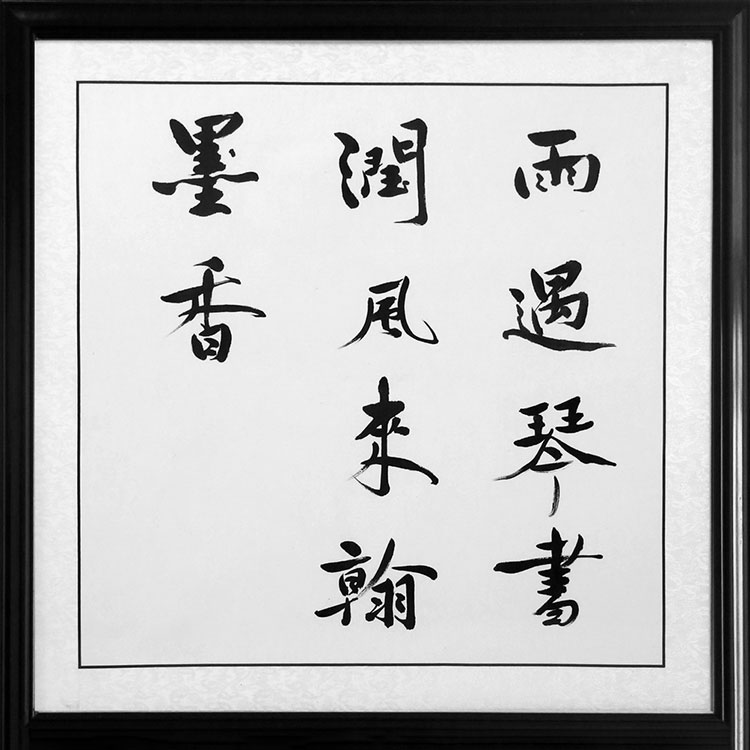 雨遇琴書
潤風來翰
墨香